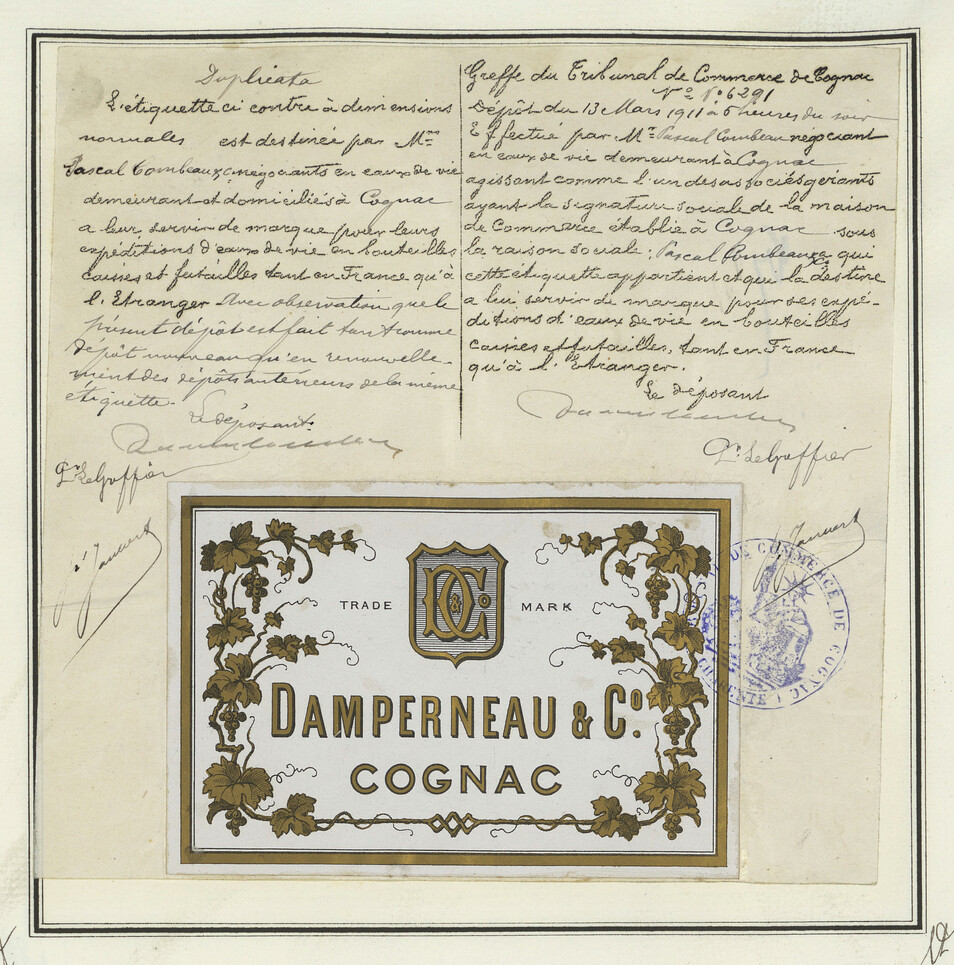 Duplicata
L'étiquette ci contre à dimensions
normales est destinée par Mrs
Pascal Combeau & Co négociants en eaux de vie
demeurant et domiciliés à Cognac
a leur servir de marque pour leurs
expéditions d'eaux de vie en bouteilles
caisses et futailles tant en France qu'à
l'Etranger Avec observation que le
présent dépôt est fait tant comme
dépôt nouveau qu'en renouvelle-
ment des dépôts antérieurs de la même
étiquette.
Le déposant.
Pr. Le Greffier
Greffe du Tribunal de Commerce de Cognac
No. No. 6291
Dépôt du 13 Mars 1911 à 5 heures du soir
Effectué par Mr. Pascal Combeau négociant
en eaux de vie demeurant à Cognac
agissant comme l'un des associés gérants
ayant la signature sociale de la maison
de Commerce établie à Cognac sous
la raison sociale: Pascal Combeau & Co à qui
cette étiquette appartient et qui la destine
a lui servir de marque pour ses expé-
ditions d'eaux de vie en bouteilles
caisses et futailles, tant en France
qu'à l'Etranger.
Le déposant
Pr. Le Greffier
TRADE MARK
D & Co
DAMPERNEAU & Co.
COGNAC
DE COMMERCE DE COGNAC
(CHARENTE)